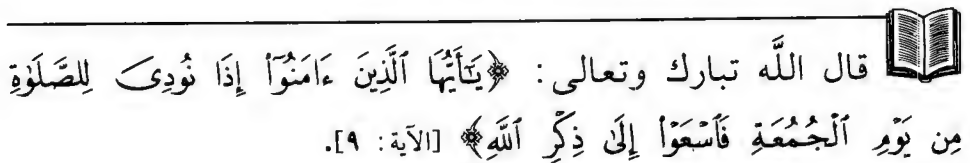 قال اللَّه تبارك وتعالى: ﴿يَٰٓأَيُّهَا ٱلَّذِينَ ءَامَنُوٓا۟ إِذَا نُودِىَ لِلصَّلَوٰةِ
مِن يَوْمِ ٱلْجُمُعَةِ فَٱسْعَوْا۟ إِلَىٰ ذِكْرِ ٱللَّهِ﴾ [الآية: ٩].